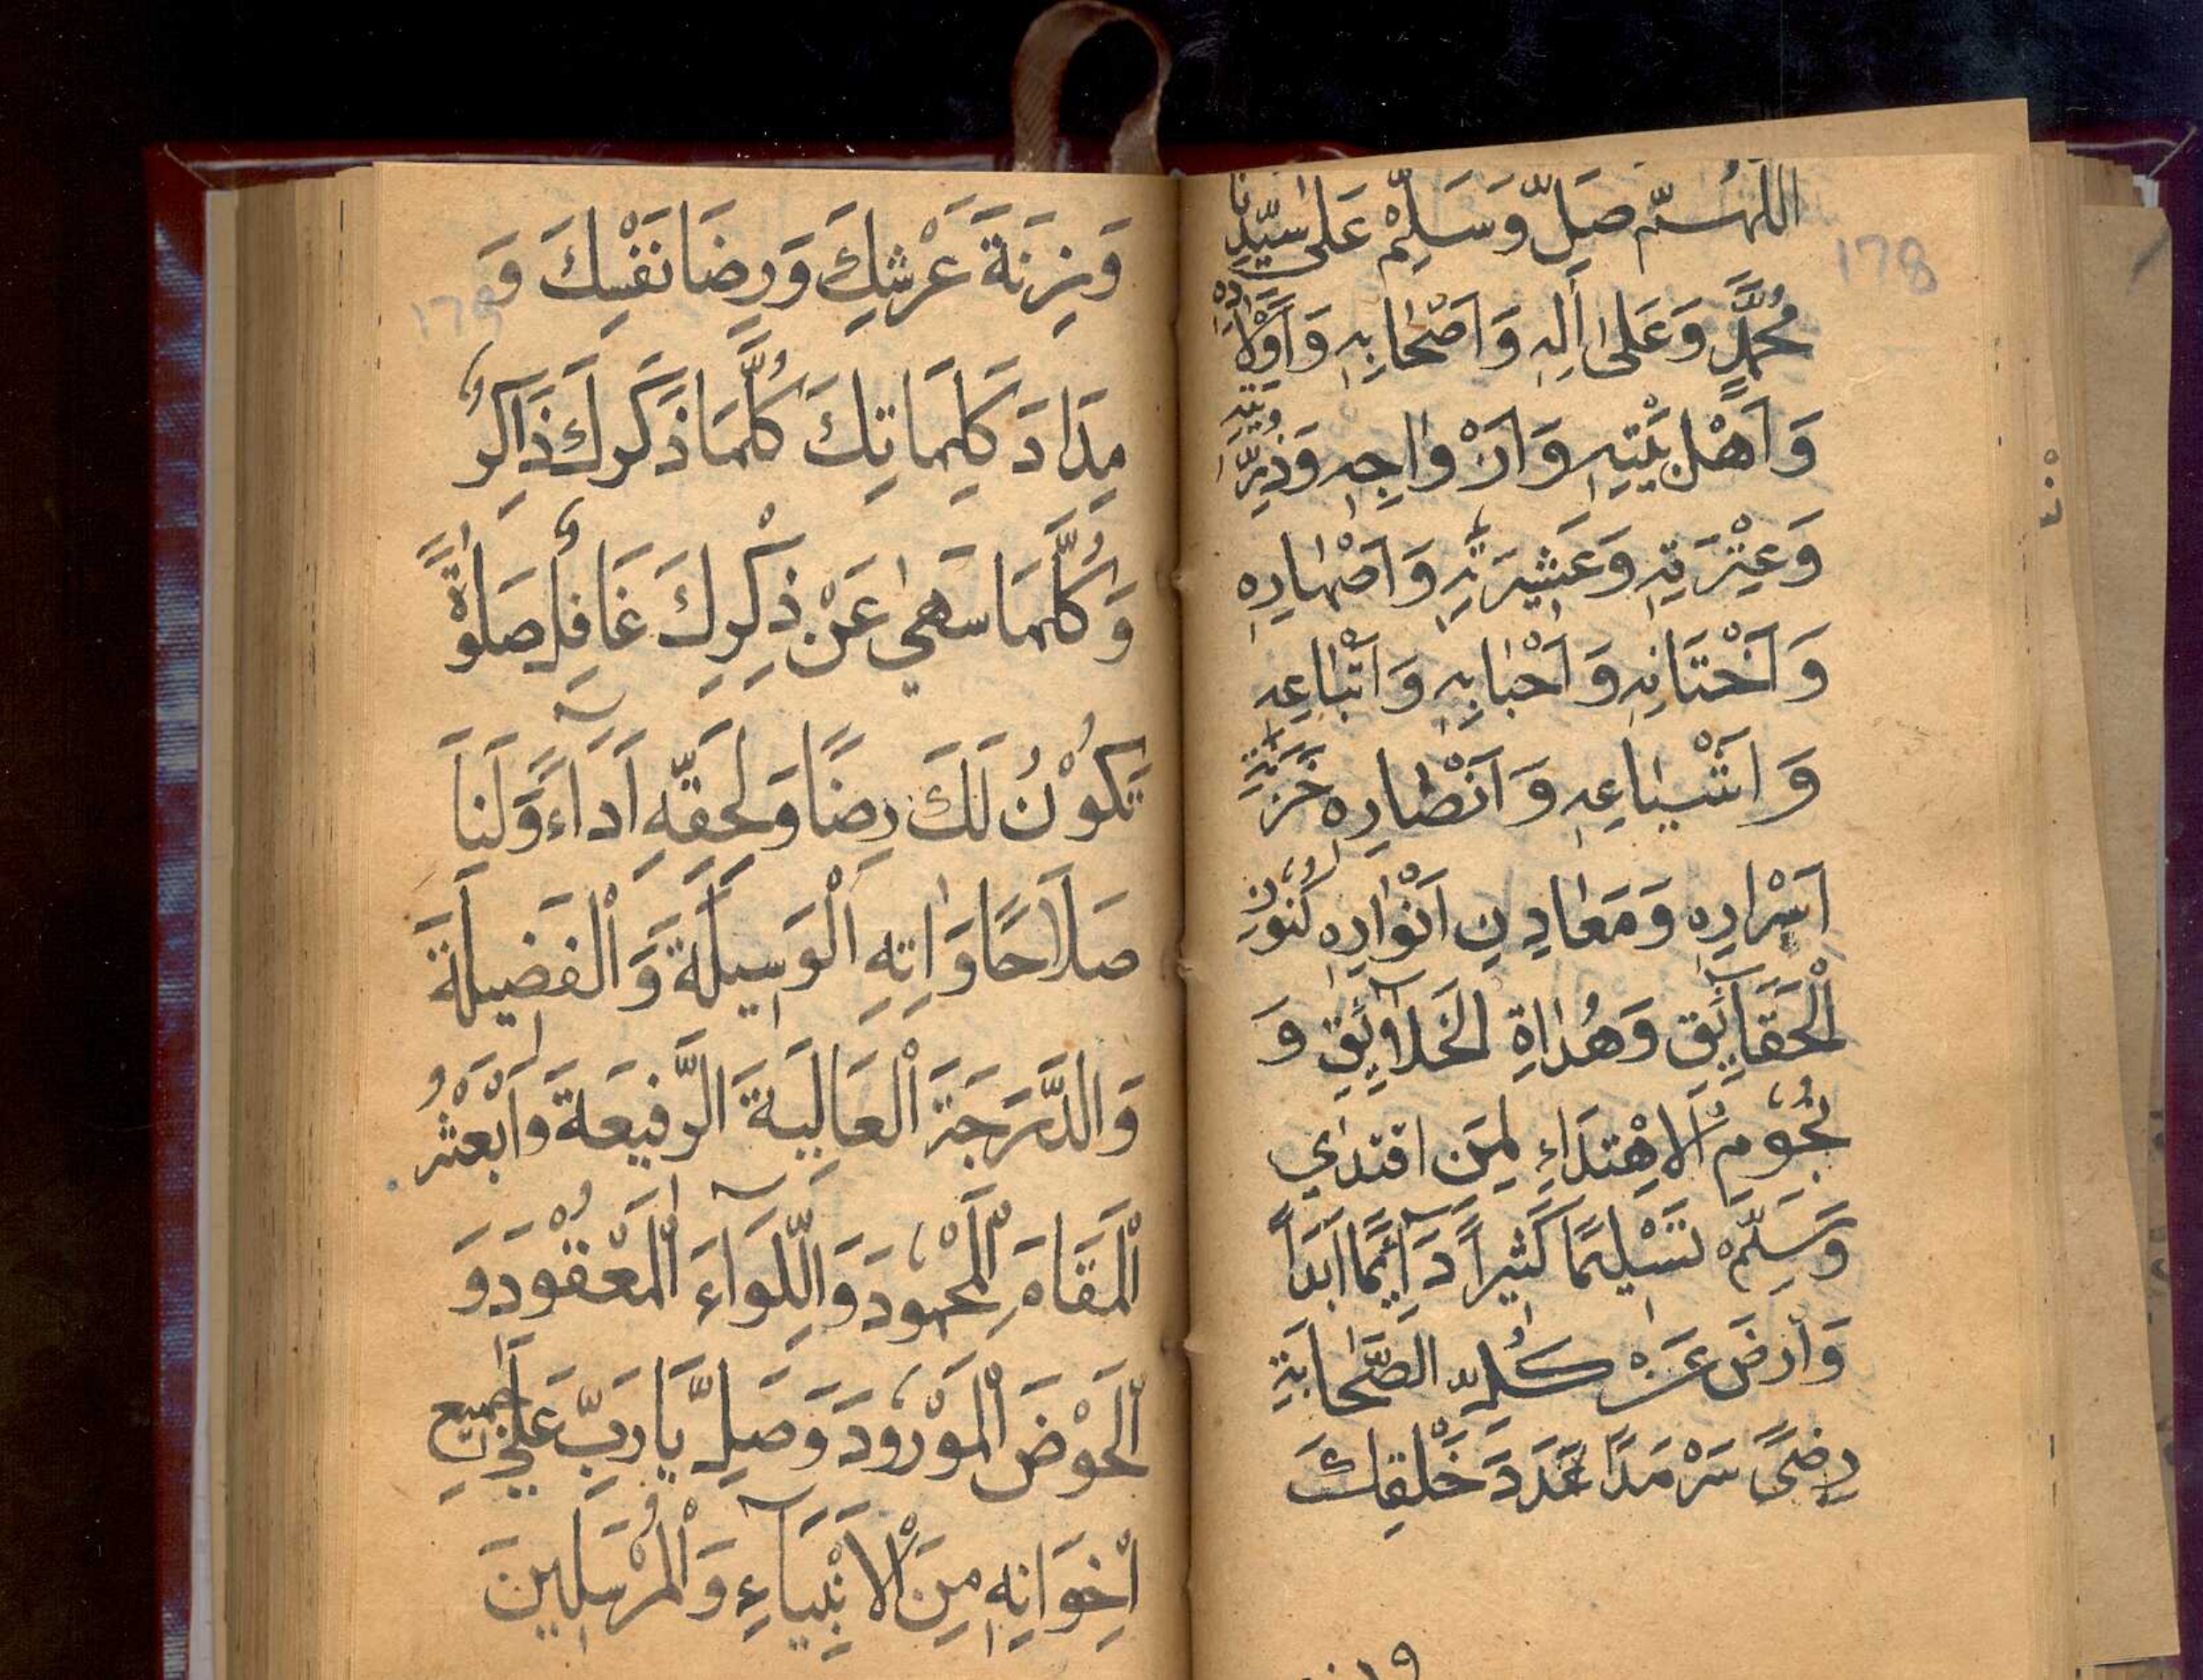 اَللّٰهُمَّ صَلِّ وَسَلِّمْ عَلٰى سَيِّدِنَا
178
مُحَمَّدٍ وَعَلٰى اٰلِهٖ وَاَصْحَابِهٖ وَاَوْلَادِهٖ
وَاَهْلِ بَيْتِهٖ وَاَزْوَاجِهٖ وَذُرِّيَّتِهٖ
وَعِتْرَتِهٖ وَعَشِيْرَتِهٖ وَاَصْهَارِهٖ
وَاَخْتَانِهٖ وَاَحْبَابِهٖ وَاَتْبَاعِهٖ
وَاَشْيَاعِهٖ وَاَنْصَارِهٖ خَزَنَةِ
اَسْرَارِهٖ وَمَعَادِنِ اَنْوَارِهٖ كُنُوْزِ
الْحَقَآئِقِ وَهُدَاةِ الْخَلَآئِقِ وَ
نُجُوْمِ الْاِهْتِدَاءِ لِمَنِ اقْتَدٰي
وَسَلِّمْ تَسْلِيْمًا كَثِيْرًا دَآئِمًا اَبَدًا
وَارْضَ عَنْ كُلِّ الصَّحَابَةِ
رِضًى سَرْمَدًا عَدَدَ خَلْقِكَ
وَزِنَةَ عَرْشِكَ وَرِضَا نَفْسِكَ وَ
179
مِدَادَ كَلِمَاتِكَ كُلَّمَا ذَكَرَكَ ذَاكِرٌ
وَكُلَّمَا سَهٰي عَنْ ذِكْرِكَ غَافِلٌ صَلٰوةً
تَكُوْنُ لَكَ رِضًا وَلِحَقِّهٖ اَدَآءً وَلَنَا
صَلَاحًا وَاٰتِهِ الْوَسِيْلَةَ وَالْفَضِيْلَةَ
وَالدَّرَجَةَ الْعَالِيَةَ الرَّفِيْعَةَ وَابْعَثْهُ
الْمَقَامَ الْمَحْمُوْدَ وَاللِّوَآءَ الْمَعْقُوْدَ وَ
الْحَوْضَ الْمَوْرُوْدَ وَصَلِّ يَا رَبِّ عَلٰي جَمِيْعِ
اِخْوَانِهٖ مِنَ الْاَنْبِيَآءِ وَالْمُرْسَلِيْنَ